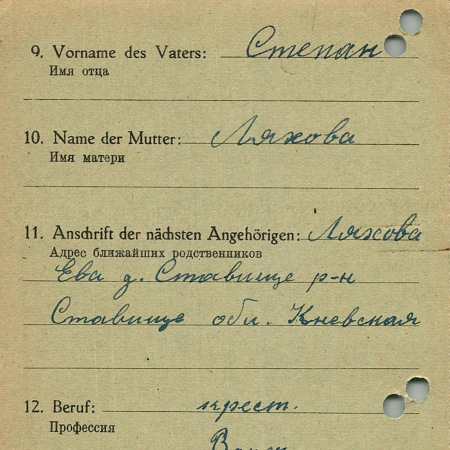 9. Vorname des Vaters: Степан
Имя отца
10. Name der Mutter: Ляхова
Имя матери
11. Anschrift der nächsten Angehörigen: Ляхова
Адрес ближайших родственников
Ева д. Ставище р-н
Ставище обл. Киевская
12. Beruf: крест.
Профессия